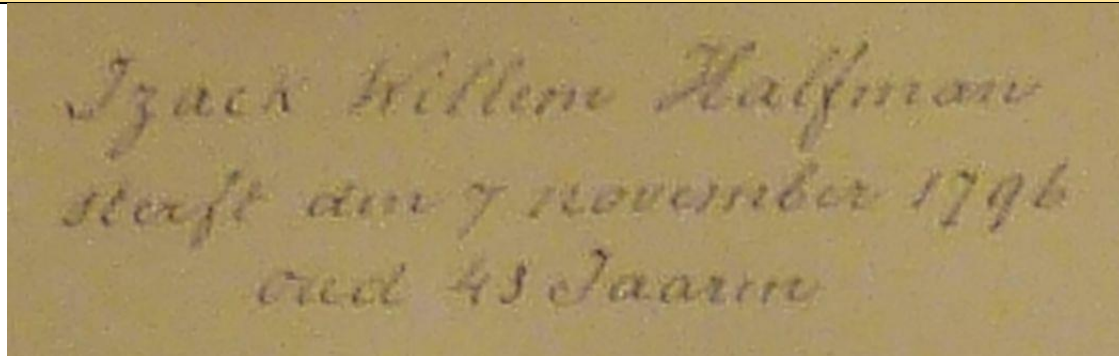 Izack Willem Halfman
sterft den 7 november 1796
oud 43 Jaaren